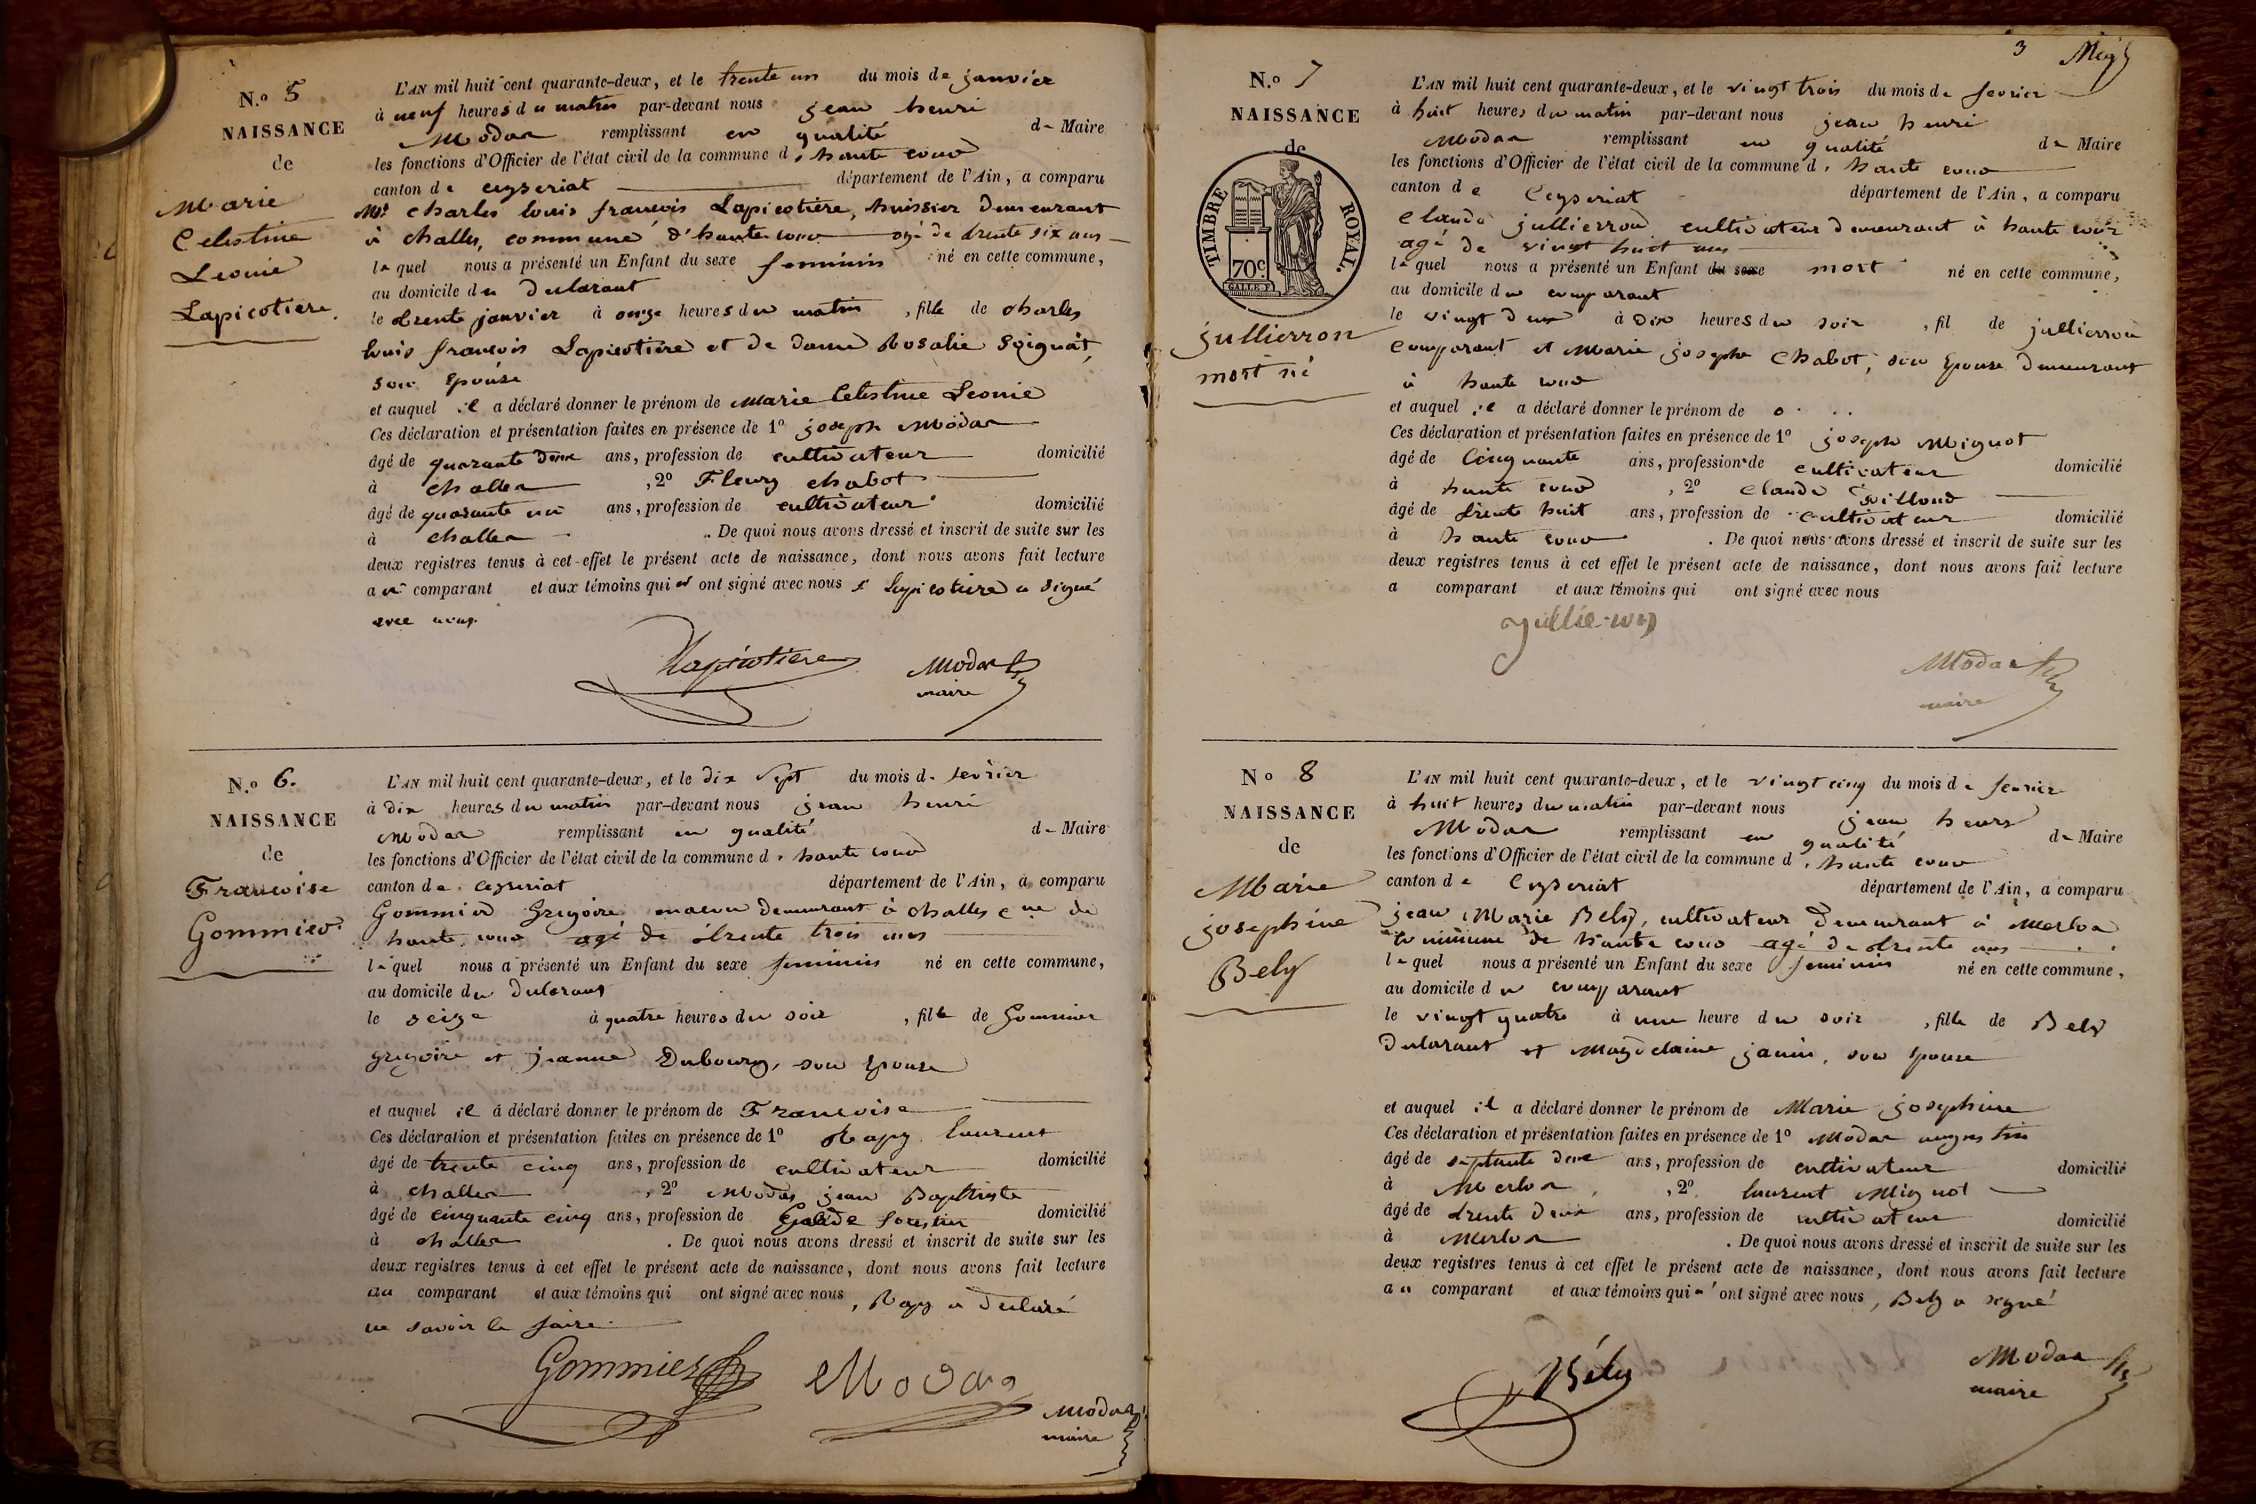 N.o 5
NAISSANCE
de
Marie
Celestine
Leonie
Lapicotiere.
L'AN mil huit cent quarante-deux, et le trente un du mois de janvier
à neuf heures du matin par-devant nous jean henri
Modas remplissant en qualité de Maire
les fonctions d'Officier de l'état civil de la commune d haute cour
canton de ceyseriat département de l'Ain, a comparu
Mr charles louis francois Lapicotière, huissier demeurant
à challes, commune d'hautecour agé de trente six ans
le quel nous a présenté un Enfant du sexe feminin né en cette commune,
au domicile du declarant
le trente janvier à onze heures du matin, fille de charles
louis francois Lapicotière et de dame Rosalie
son épouse
et auquel il a déclaré donner le prénom de Marie Celestine Leonie
Ces déclaration et présentation faites en présence de 1o joseph Modas
âgé de quarante deux ans, profession de cultivateur domicilié
à challes, 2o Fleury chabot
âgé de quarante un ans, profession de cultivateur domicilié
à challes. De quoi nous avons dressé et inscrit de suite sur les
deux registres tenus à cet effet le présent acte de naissance, dont nous avons fait lecture
au comparant et aux témoins qui ont signé avec nous lapicotiere a signé
avec nous
Lapicotiere Modas
maire
N.o 6.
NAISSANCE
de
Francoise
Gommier
L'AN mil huit cent quarante-deux, et le dix sept du mois de fevrier
à dix heures du matin par-devant nous jean henri
Modas remplissant en qualité de Maire
les fonctions d'Officier de l'état civil de la commune d haute cour
canton de ceyseriat département de l'Ain, a comparu
Gommier Gregoire macon demeurant à challes cne de
haute cour agé de trente trois ans
le quel nous a présenté un Enfant du sexe feminin né en cette commune,
au domicile du declarant
le seize à quatre heures du soir, fille de Gommier
gregoire et jeanne Dubourg, son épouse
et auquel il a déclaré donner le prénom de Francoise
Ces déclaration et présentation faites en présence de 1o Rapy laurent
âgé de trente cinq ans, profession de cultivateur domicilié
à challes, 2o Modas jean Baptiste
âgé de cinquante cinq ans, profession de Garde forestier domicilié
à challes. De quoi nous avons dressé et inscrit de suite sur les
deux registres tenus à cet effet le présent acte de naissance, dont nous avons fait lecture
au comparant et aux témoins qui ont signé avec nous, Rapy a declaré
ne savoir le faire
Gommier Modas
Modas
maire
3
N.o 7
NAISSANCE
de
TIMBRE ROYAL.
70c.
jullierron
mort né
L'AN mil huit cent quarante-deux, et le vingt trois du mois de fevrier
à huit heures du matin par-devant nous jean henri
Modas remplissant en qualité de Maire
les fonctions d'Officier de l'état civil de la commune d haute cour
canton de Ceyseriat département de l'Ain, a comparu
claude jullierron cultivateur demeurant à haute cour
agé de vingt huit ans
le quel nous a présenté un Enfant du sexe mort né en cette commune,
au domicile du comparant
le vingt deux à dix heures du soir, fil de jullierron
comparant et Marie josephe Chabot, son épouse demeurant
à haute cour
et auquel il a déclaré donner le prénom de
Ces déclaration et présentation faites en présence de 1o joseph Mignot
âgé de Cinquante ans, profession de cultivateur domicilié
à haute cour, 2o claude
âgé de trente huit ans, profession de cultivateur domicilié
à haute cour. De quoi nous avons dressé et inscrit de suite sur les
deux registres tenus à cet effet le présent acte de naissance, dont nous avons fait lecture
a comparant et aux témoins qui ont signé avec nous
Modas
maire
No 8
NAISSANCE
de
Marie
josephine
Bely
L'AN mil huit cent quarante-deux, et le vingt cinq du mois de fevrier
à huit heures du matin par-devant nous jean henri
Modas remplissant en qualité de Maire
les fonctions d'Officier de l'état civil de la commune d haute cour
canton de Ceyseriat département de l'Ain, a comparu
jean Marie Bely, cultivateur demeurant à Merloz
commune de haute cour agé de trente ans
le quel nous a présenté un Enfant du sexe feminin né en cette commune,
au domicile du comparant
le vingt quatre à une heure du soir, fille de Bely
declarant et Magdelaine janin, son épouse
et auquel il a déclaré donner le prénom de Marie josephine
Ces déclaration et présentation faites en présence de 1o Modas augustin
âgé de septante deux ans, profession de cultivateur domicilié
à Merloz, 2o laurent Mignot
âgé de trente deux ans, profession de cultivateur domicilié
à Merloz. De quoi nous avons dressé et inscrit de suite sur les
deux registres tenus à cet effet le présent acte de naissance, dont nous avons fait lecture
au comparant et aux témoins qui ont signé avec nous, Bely a signé
Bély Modas
maire